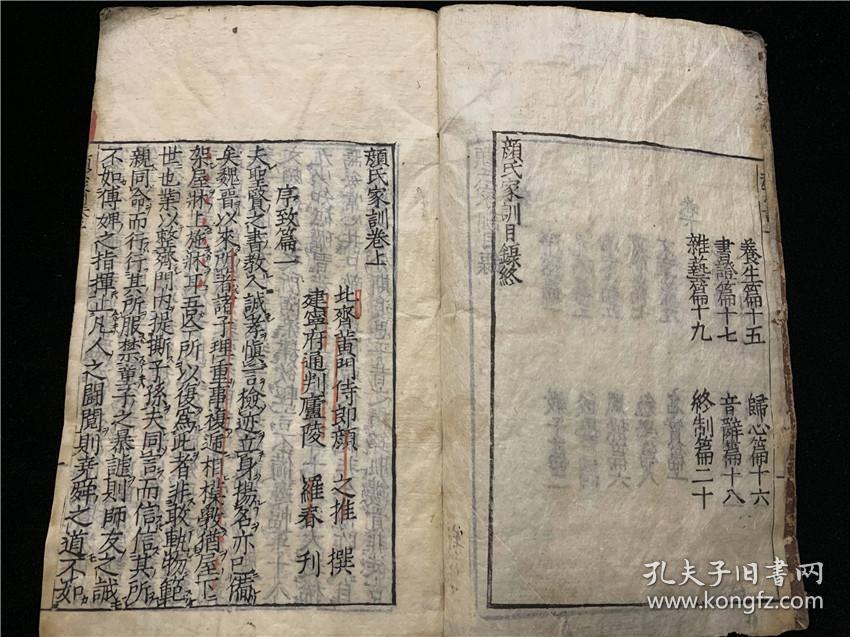 養生篇十五　歸心篇十六
書證篇十七　音辭篇十八
雜藝篇十九　終制篇二十
顏氏家訓目錄終
顏氏家訓卷上
北齊黃門侍郎顏之推　撰
建寧府通判廬陵　羅春　刊
序致篇一
夫聖賢之書教人誠孝慎言檢迹立身揚名亦已備
矣魏晉以來所著諸子理重事複遞相模斆猶屋下
架屋牀上施牀耳吾今所以復爲此者非敢軌物範
世也業以整齊門内提撕子孫夫同言而信信其所
親同命而行行其所服禁童子之暴謔則師友之誡
不如傅婢之指揮止凡人之鬪鬩則堯舜之道不如
孔夫子旧书网
www.kongfz.com